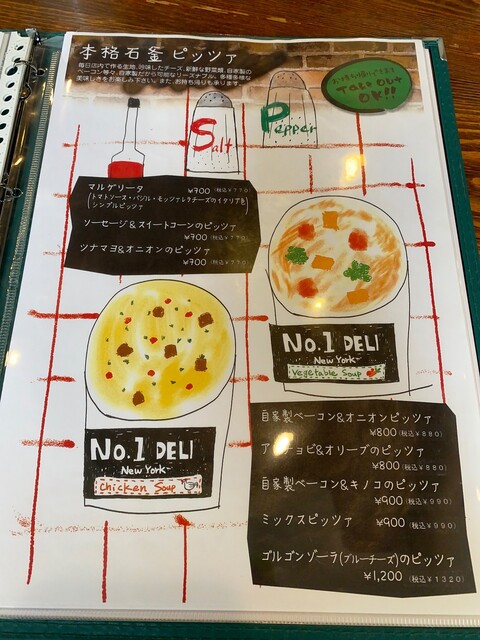 本格石釜ピッツァ
毎日店内で作る生地、吟味したチーズ、新鮮な野菜類、自家製の
ベーコン等々、自家製だから可能なリーズナブル。多種多様な
美味しさをお楽しみ下さい。また、お持ち帰りも承ります。
お持ち帰りできます
TAKE OUT
OK!!
Salt
Pepper
マルゲリータ ¥700 (税込¥770)
(トマトソース・バジル・モッツァレラチーズのイタリア色
シンプルピッツァ)
ソーセージ&スイートコーンのピッツァ
¥700 (税込¥770)
ツナマヨ&オニオンのピッツァ
¥700 (税込¥770)
No.1 DELI
-New York-
Vegetable Soup
No.1 DELI
-New York-
Chicken Soup
自家製ベーコン&オニオンピッツァ
¥800 (税込¥880)
アンチョビ&オリーブのピッツァ
¥800 (税込¥880)
自家製ベーコン&キノコのピッツァ
¥900 (税込¥990)
ミックスピッツァ ¥900 (税込¥990)
ゴルゴンゾーラ(ブルーチーズ)のピッツァ
¥1,200 (税込¥1320)